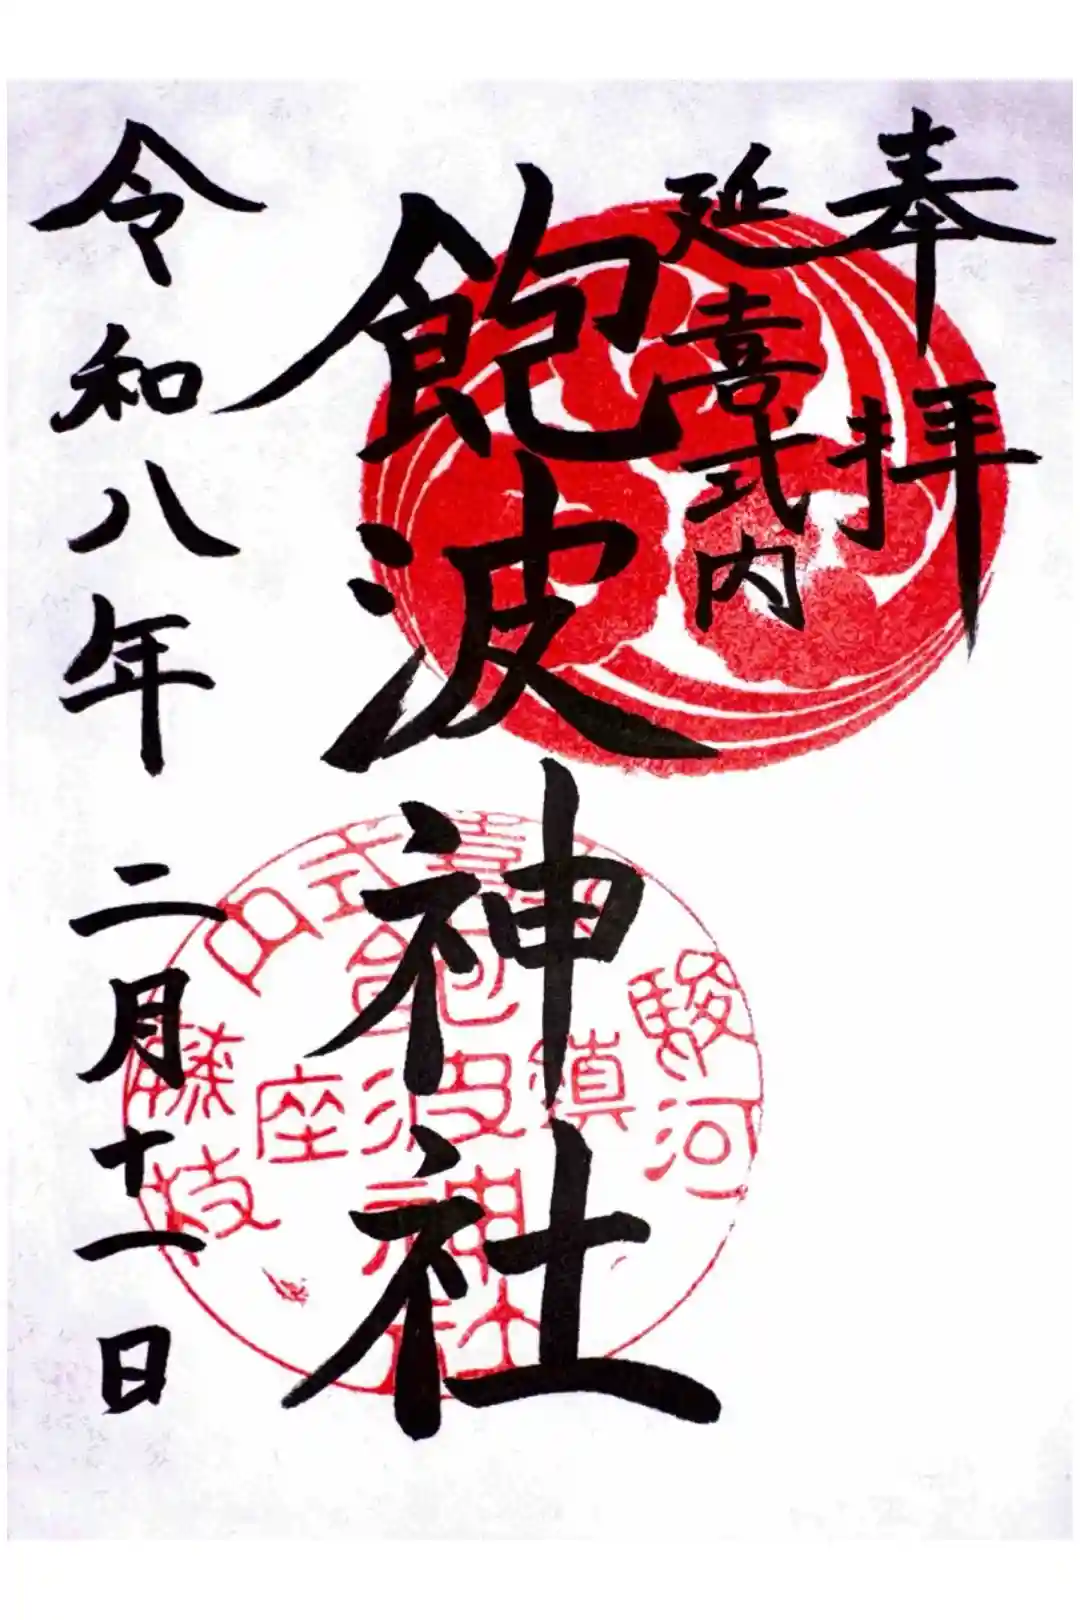 奉拝
延喜式内
飽波神社
令和八年二月十一日
駿河
式内
藤枝
鎮座
飽波神社